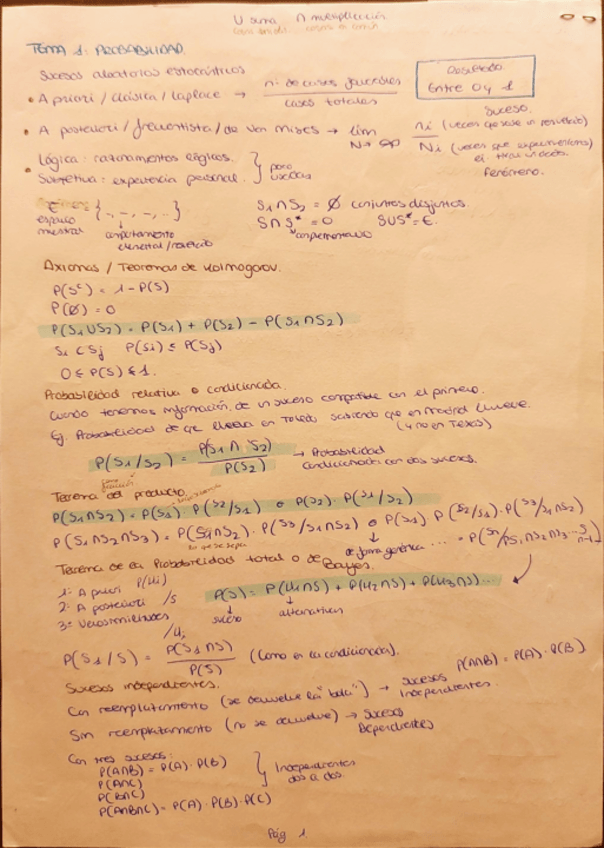 U suma ∩ multiplicación
TEMA 1: PROBABILIDAD.
Sucesos aleatorios estocásticos
• A priori / clásica / Laplace → nº de casos favorables / casos totales
Resultado
Entre 0 y 1
• A posteriori / frecuentista / de Von Mises → lim N→∞ ni / Ni
suceso.
(veces que sale un resultado)
(veces que experimentamos)
fenómeno.
• Lógica: razonamientos lógicos.
Subjetiva: experiencia personal. } poco usadas
E = {., -, -, ..}
espacio muestral
comportamiento elemental /
S1 ∩ S2 = ∅ conjuntos disjuntos.
S ∩ S* = 0 S U S* = E.
complementario
Axiomas / Teoremas de Kolmogorov.
P(Sᶜ) = 1 - P(S)
P(∅) = 0
P(S1 U S2) = P(S1) + P(S2) - P(S1 ∩ S2)
Si ⊂ Sj P(Si) ≤ P(Sj)
0 ≤ P(S) ≤ 1.
Probabilidad relativa o condicionada.
Cuando tenemos información, de un suceso compatible con el primero.
Ej. Probabilidad de que llueva en Toledo sabiendo que en Madrid llueve.
(y no en Texas)
P(S1/S2) = P(S1 ∩ S2) / P(S2) → Probabilidad condicionada con dos sucesos.
Teorema del producto.
P(S1∩S2) = P(S1) · P(S2/S1) o P(S2) · P(S1/S2)
P(S1∩S2∩S3) = P(S1∩S2) · P(S3/S1∩S2) o P(S1) P(S2/S1) · P(S3/S1∩S2)
de forma genérica ... = P(Sn/S1∩S2∩S3...Sn-1)
Teorema de la Probabilidad total o de Bayes.
1º A priori P(Ui)
2º A posteriori /S
3º Verosimilitudes /Ui
P(S) = P(U1∩S) + P(U2∩S) + P(U3∩S)...
suceso
alternativas
P(S1/S) = P(S1∩S) / P(S) (Como en la condicionada).
Sucesos independientes.
Con reemplazamiento (se devuelve la "bola") → Sucesos Independientes.
P(A∩B) = P(A) · P(B)
Sin reemplazamiento (no se devuelve) → Sucesos Dependientes
Con tres sucesos:
P(A∩B) = P(A) · P(B)
P(A∩C)
P(B∩C)
} Independientes dos a dos.
P(A∩B∩C) = P(A) · P(B) · P(C)
Pág 1.